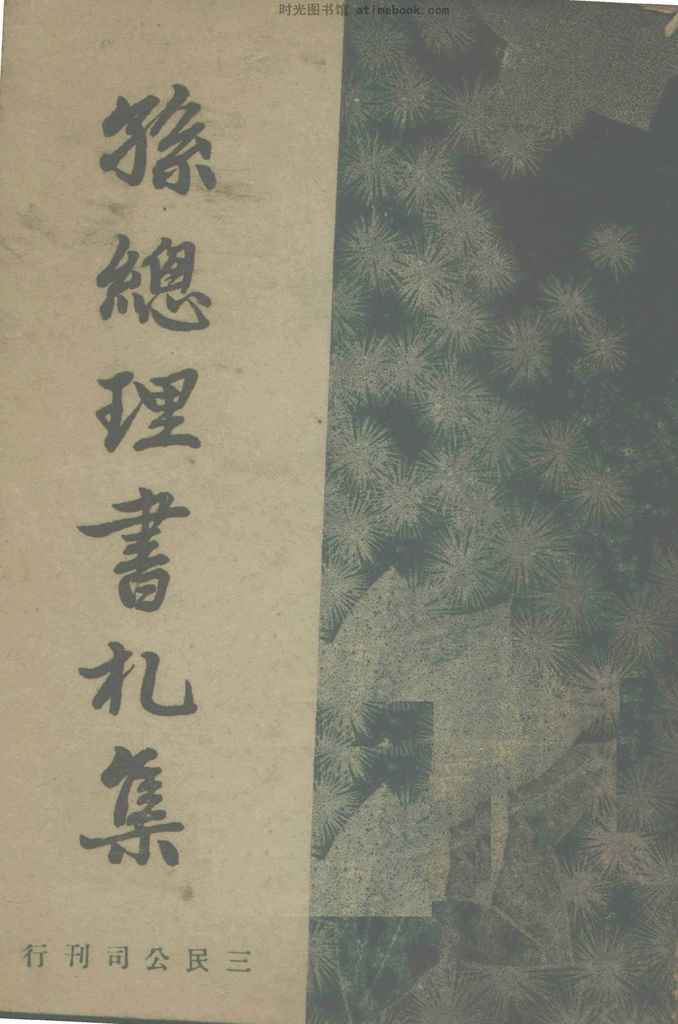 时光图书馆 atimebook.com
孫總理書札集
三民公司刊行